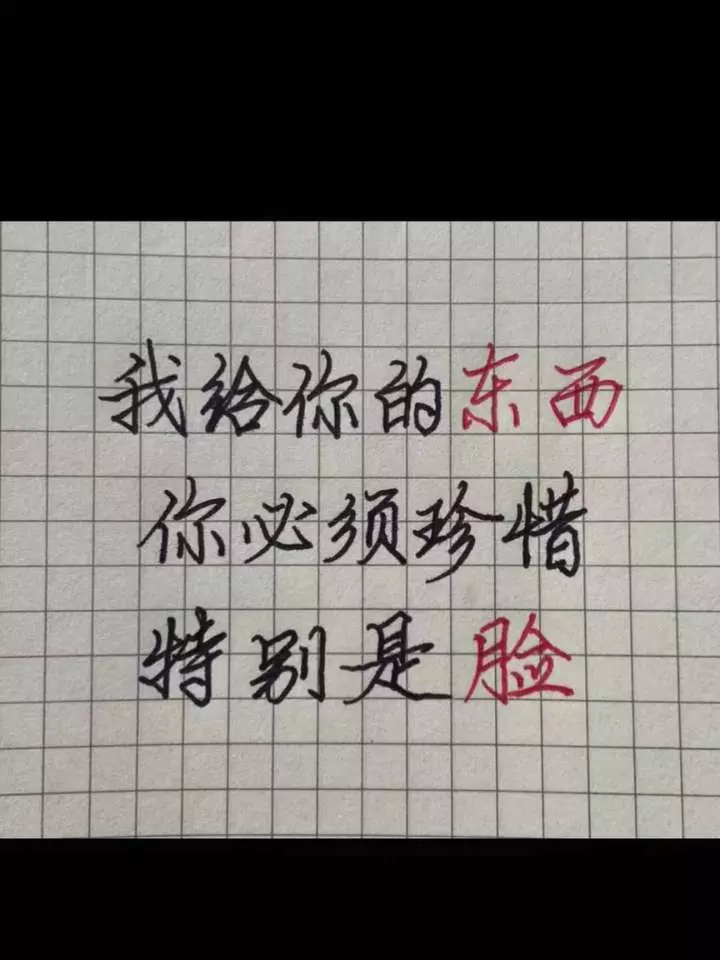 我给你的东西
你必须珍惜
特别是脸